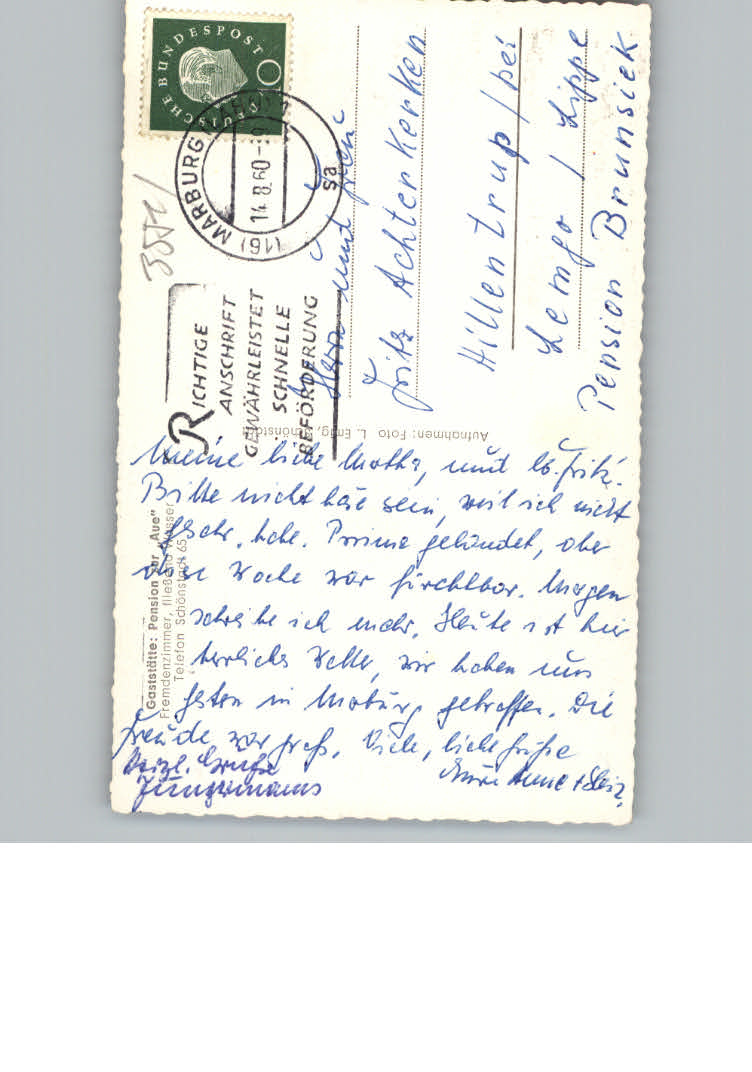 DEUTSCHE BUNDESPOST
10
(16) MARBURG
14.8.60
sa
RICHTIGE
ANSCHRIFT
GEWÄHRLEISTET
SCHNELLE
BEFÖRDERUNG
Herrn und Frau
Fritz Achterkerken
Hillentrup / bei
Lemgo / Lippe
Pension Brunsiek
Aufnahmen: Foto L. Schönstadt
Gaststätte: Pension zur „Aue"
Fremdenzimmer, fließend Wasser
Telefon Schönstadt 65
Meine liebe Martha, und lb. Fritz.
Bitte nicht böse sein, weil ich nicht
geschr. habe. Prima gelandet, aber
Woche war furchtbar. Morgen
schreibe ich mehr. Heute ist hier
herrliches Wetter, wir haben uns
gestern in Marburg getroffen. Die
Freude war groß. Viele, liebe Grüße
Eure Anne + Heinz.
Herzl. Grüße
Jüngermanns